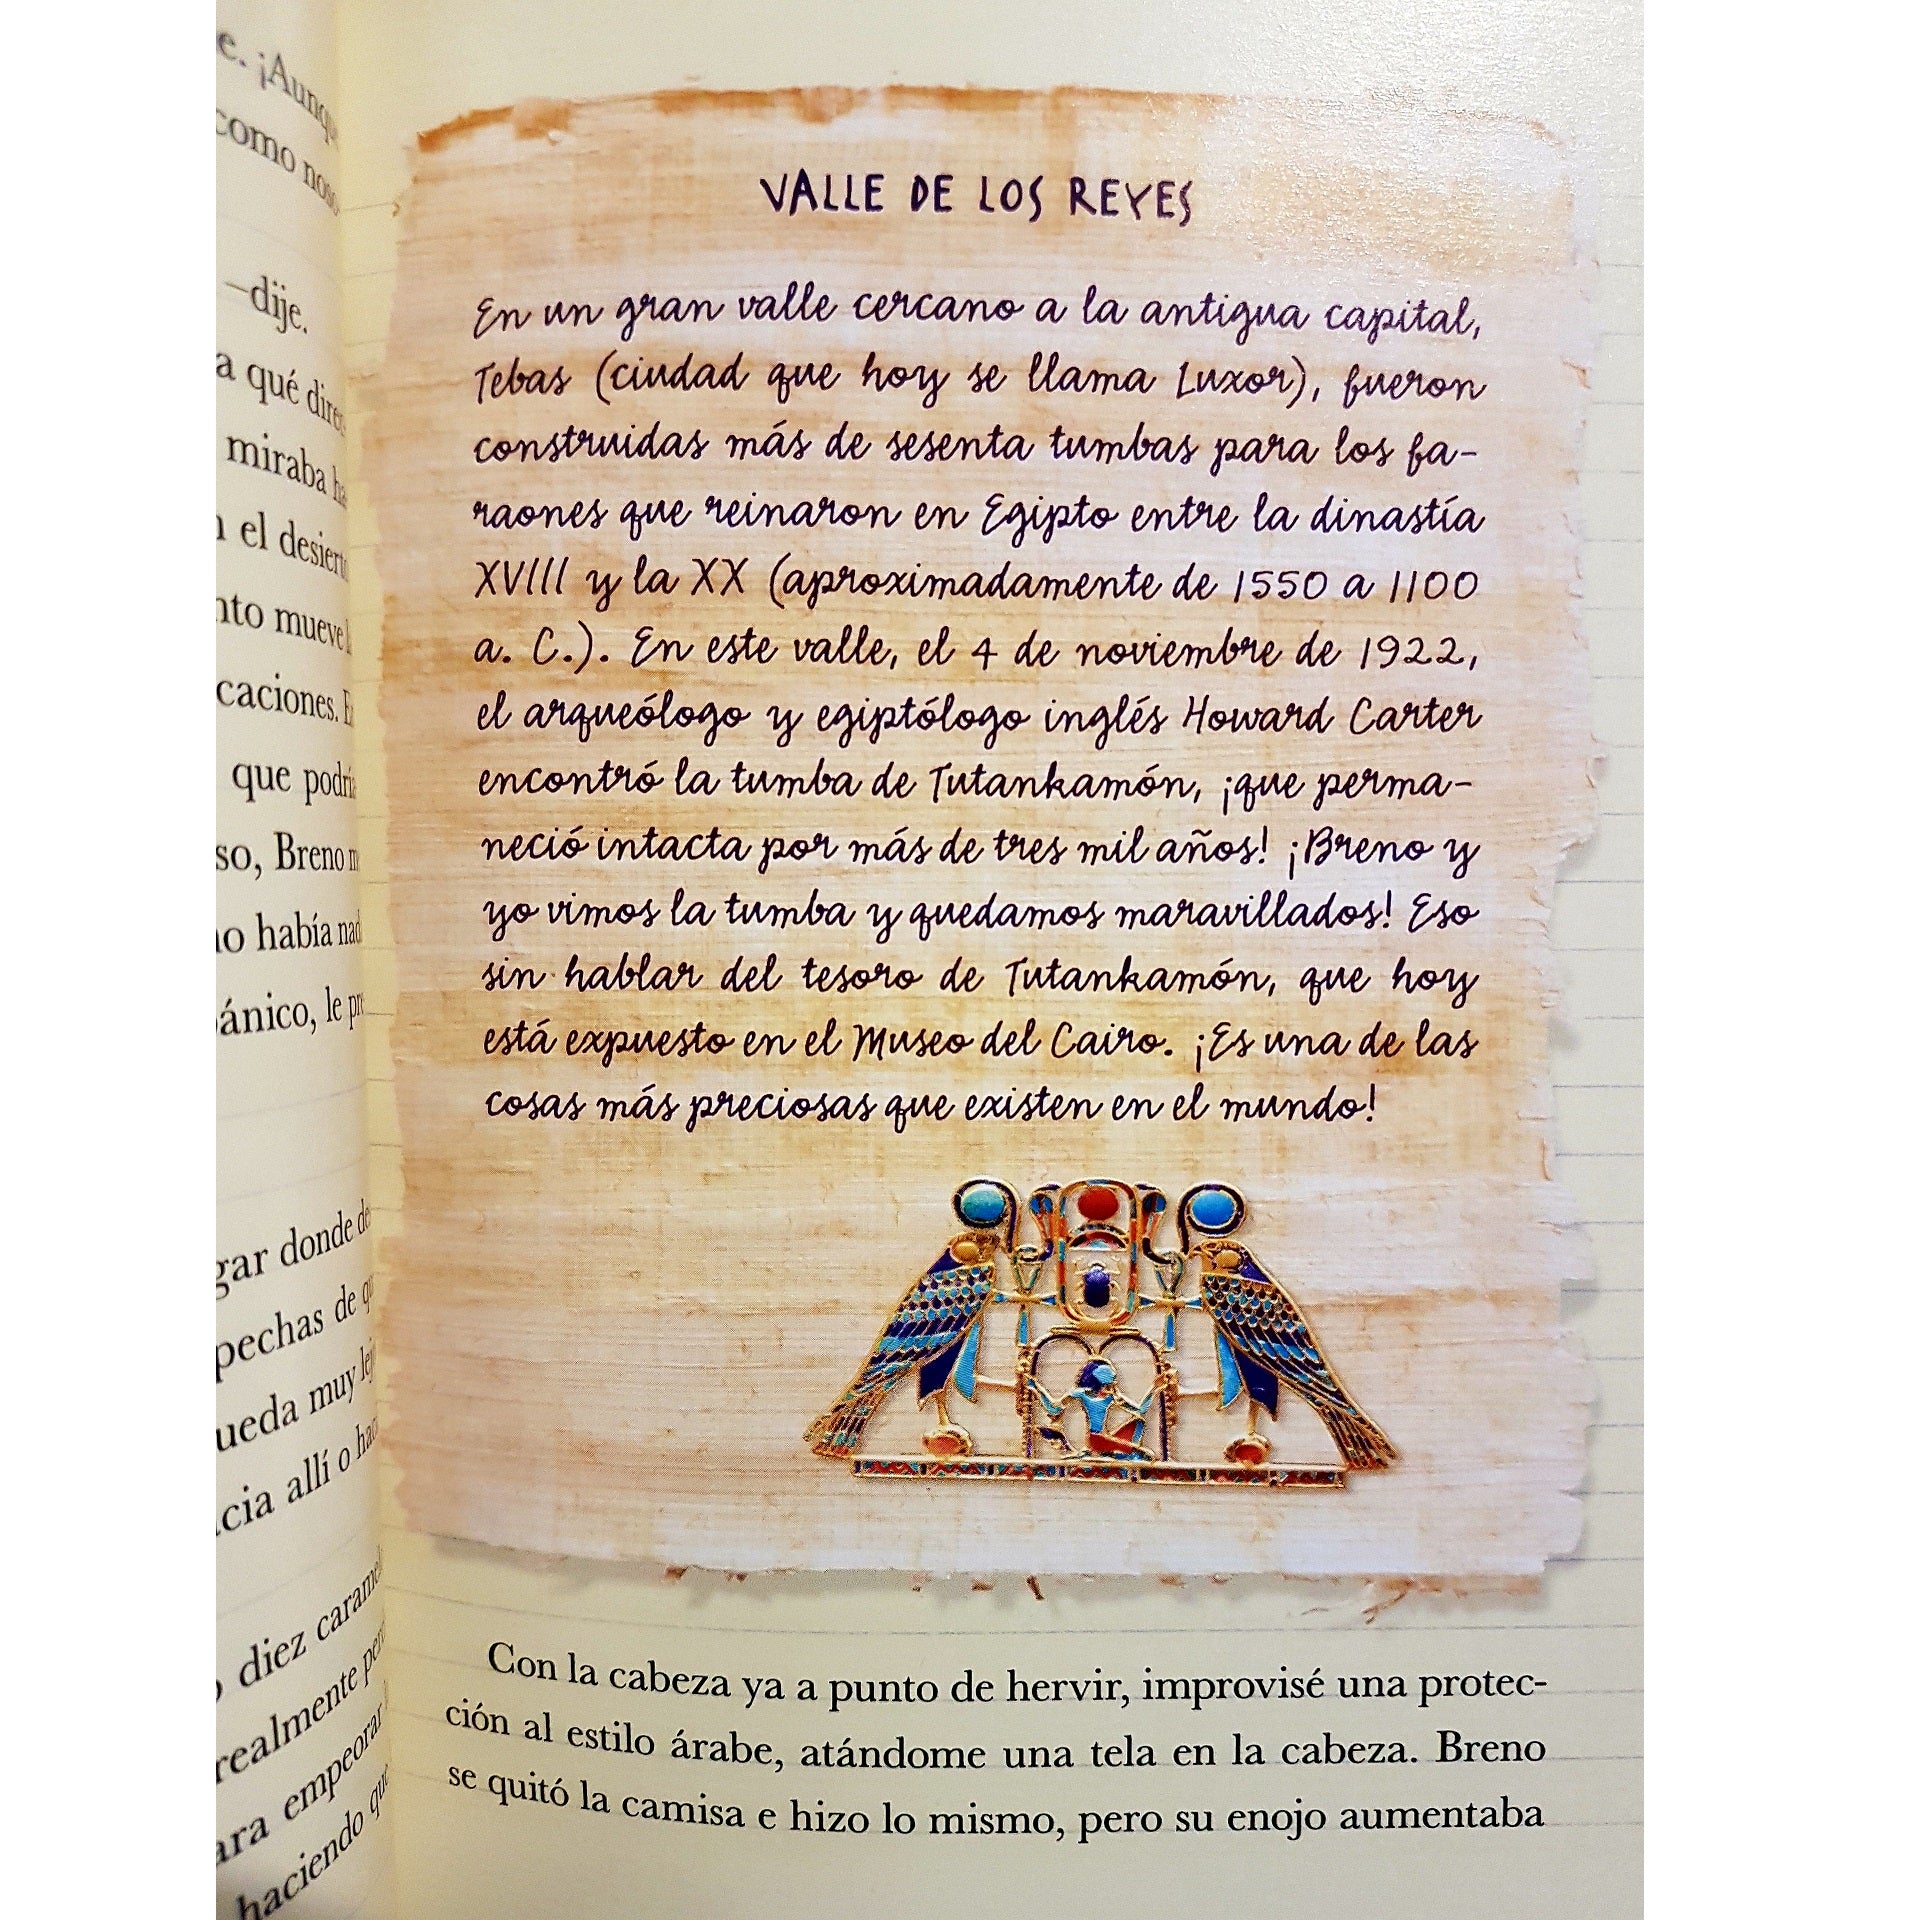 e. ¡Aunq
como noso
–dije.
a qué dire
miraba ha
el desiert
nto mueve
caciones.
que podrí
so, Breno
no había nad
pánico, le pr
gar donde de
pechas de
ueda muy lej
cia allí o hac
diez caramel
realmente per
ara empeorar
haciendo que
VALLE DE LOS REYES
En un gran valle cercano a la antigua capital,
Tebas (ciudad que hoy se llama Luxor), fueron
construidas más de sesenta tumbas para los fa-
raones que reinaron en Egipto entre la dinastía
XVIII y la XX (aproximadamente de 1550 a 1100
a. C.). En este valle, el 4 de noviembre de 1922,
el arqueólogo y egiptólogo inglés Howard Carter
encontró la tumba de Tutankamón, ¡que perma-
neció intacta por más de tres mil años! ¡Breno y
yo vimos la tumba y quedamos maravillados! Eso
sin hablar del tesoro de Tutankamón, que hoy
está expuesto en el Museo del Cairo. ¡Es una de las
cosas más preciosas que existen en el mundo!
Con la cabeza ya a punto de hervir, improvisé una protec-
ción al estilo árabe, atándome una tela en la cabeza. Breno
se quitó la camisa e hizo lo mismo, pero su enojo aumentaba